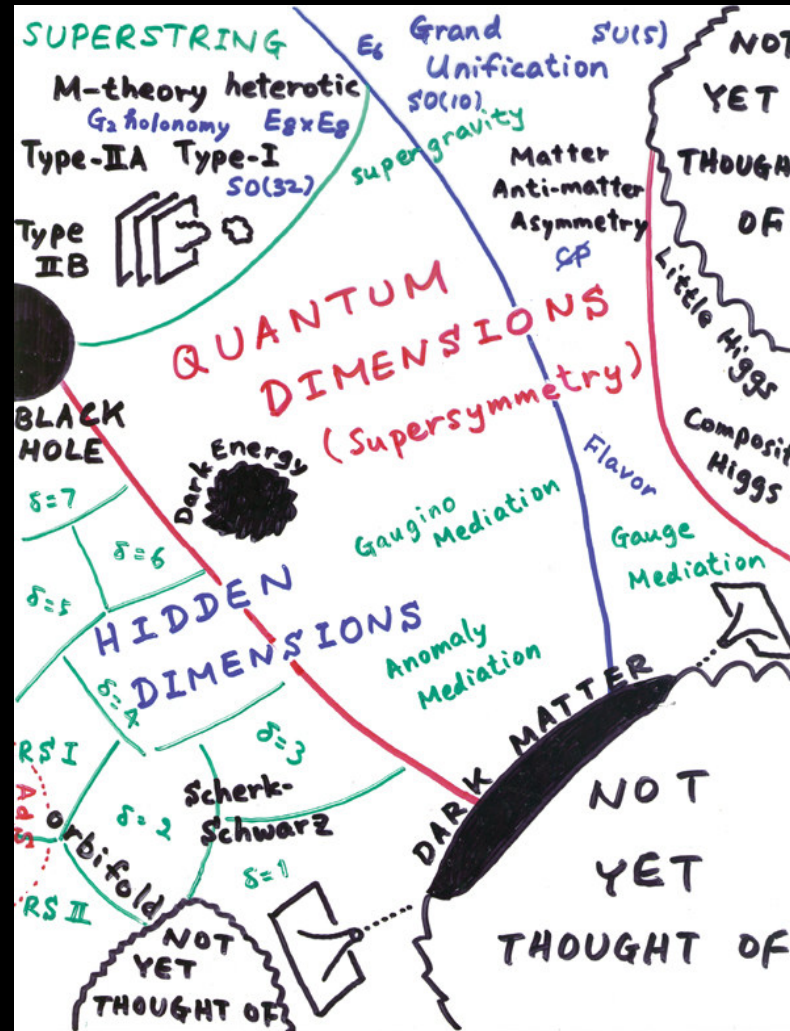 SUPERSTRING
M-theory heterotic
G₂ holonomy E₈×E₈
Type-IIA Type-I
SO(32)
Type
IIB
E₆
Grand
Unification
SU(5)
SO(10)
supergravity
Matter
Anti-matter
Asymmetry
CP
NOT
YET
THOUGH
OF
Little Higgs
Composit
Higgs
QUANTUM
DIMENSIONS
(Supersymmetry)
BLACK
HOLE
Dark Energy
Flavor
Gaugino
Mediation
Gauge
Mediation
Anomaly
Mediation
δ=7
δ=6
δ=5
HIDDEN
DIMENSIONS
δ=4
δ=3
RS I
AdS
RS II
orbifold
δ=2
Scherk-
Schwarz
δ=1
DARK MATTER
NOT
YET
THOUGHT OF
NOT
YET
THOUGHT OF